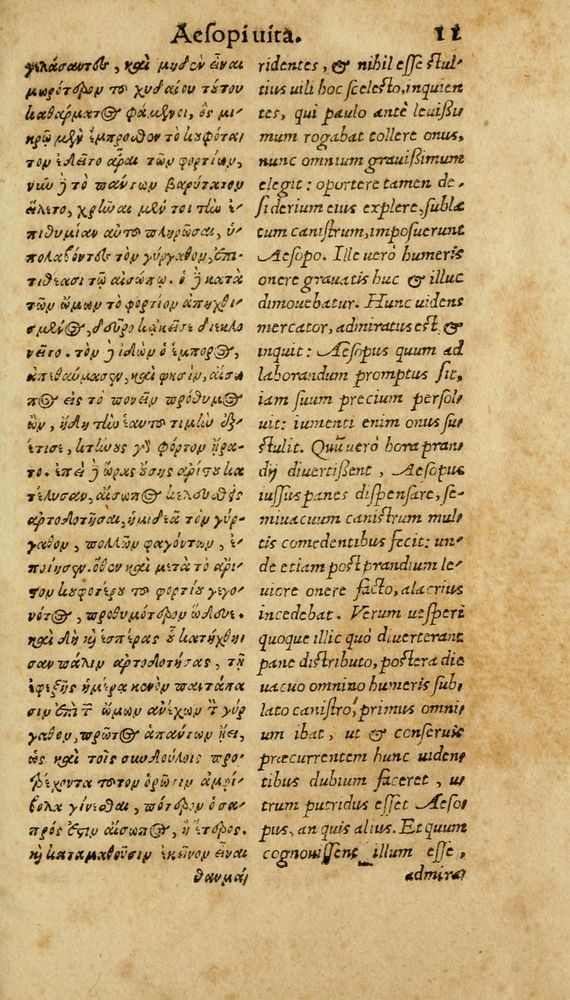 Aesopi uita. 11
γελάσαντες, καὶ μηδὲν εἶναι
μωρότερον τοῦ χυδαίου τούτου
καθάρματος φάμενοι, ὃς μι-
κρῷ μὲν ἔμπροσθεν τὸ κουφότα-
τον ᾐτεῖτο ἆραι τῶν φορτίων,
νῦν δὲ τὸ πάντων βαρύτατον
εἵλετο, χρῆναι μέν τοι τὴν ἐ-
πιθυμίαν αὐτοῦ πληρῶσαι, ὑ-
πολαβόντες τὸν γύργαθον, ἐπι-
τιθέασι τῷ αἰσώπῳ. ὁ δὲ κατὰ
τῶν ὤμων τὸ φορτίον ἀπηχθι-
σμένος, δεῦρο κἀκεῖσε διεκλο-
νεῖτο. τὸν δὲ ἰδὼν ὁ ἔμπορος,
ἀπεθαύμασεν, καὶ φησίν, αἴσω-
πος εἰς τὸ πονεῖν πρόθυμος
ὢν, ἤδη τὴν ἑαυτοῦ τιμὴν ἐξέ-
τισε, κτήνους γὰρ φόρτον ᾔρα-
το. ἐπεὶ δὲ ὥρας οὔσης ἀρίστου κα-
τέλυσαν, αἴσωπος κελευσθεὶς
ἀρτοδοτῆσαι, ἡμιδεᾶ τὸν γύρ-
γαθον, πολλῶν φαγόντων, ἐ-
ποίησεν. ὅθεν καὶ μετὰ τὸ ἄρι-
στον κουφοτέρου τοῦ φορτίου γεγο-
νότος, προθυμότερον ὥδευε.
καὶ δὴ καὶ ἑσπέρας οὗ κατήχθη-
σαν πάλιν ἀρτοδοτήσας, τῇ
ἐφεξῆς ἡμέρᾳ κενὸν παντάπα-
σιν ἐπὶ τῶν ὤμων ἀνέχων τὸν γύρ-
γαθον, πρῶτος ἁπάντων ᾔει,
ὡς καὶ τοῖς συνδούλοις προ-
τρέχοντα τοῦτον ὁρῶσιν ἀμφί-
βολα γίνεσθαι, πότερον ὁ σα-
πρός ἐστιν αἴσωπος, ἢ ἕτερος.
καὶ καταμαθοῦσιν ἐκεῖνον εἶναι
θαυμά/
ridentes, & nihil esse stul-
tius uili hoc scelesto, inquien
tes, qui paulo antè leuissi-
mum rogabat tollere onus,
nunc omnium grauissimum
elegit: oportere tamen de-
siderium eius explere, subla
tum canistrum, imposuerunt
Aesopo. Ille uerò humeris
onere grauatis huc & illuc
dimouebatur. Hunc uidens
mercator, admiratus est &
inquit: Aesopus quum ad
laborandum promptus sit,
iam suum precium persol-
uit: iumenti enim onus su-
stulit. Quū uerò hora pran-
dij diuertissent, Aesopus
iussus panes dispensare, se-
miuacuum canistrum mul-
tis comedentibus fecit: un-
de etiam post prandium le-
uiore onere facto, alacrius
incedebat. Verum uesperi
quoque illic quò diuerterant
pane distributo, postera die
uacuo omnino humeris sub-
lato canistro, primus omni-
um ibat, ut & conseruis
præcurrentem hunc uiden-
tibus dubium faceret, u-
trum putridus esset Aeso-
pus, an quis alius. Et quum
cognouissent illum esse,
admira-